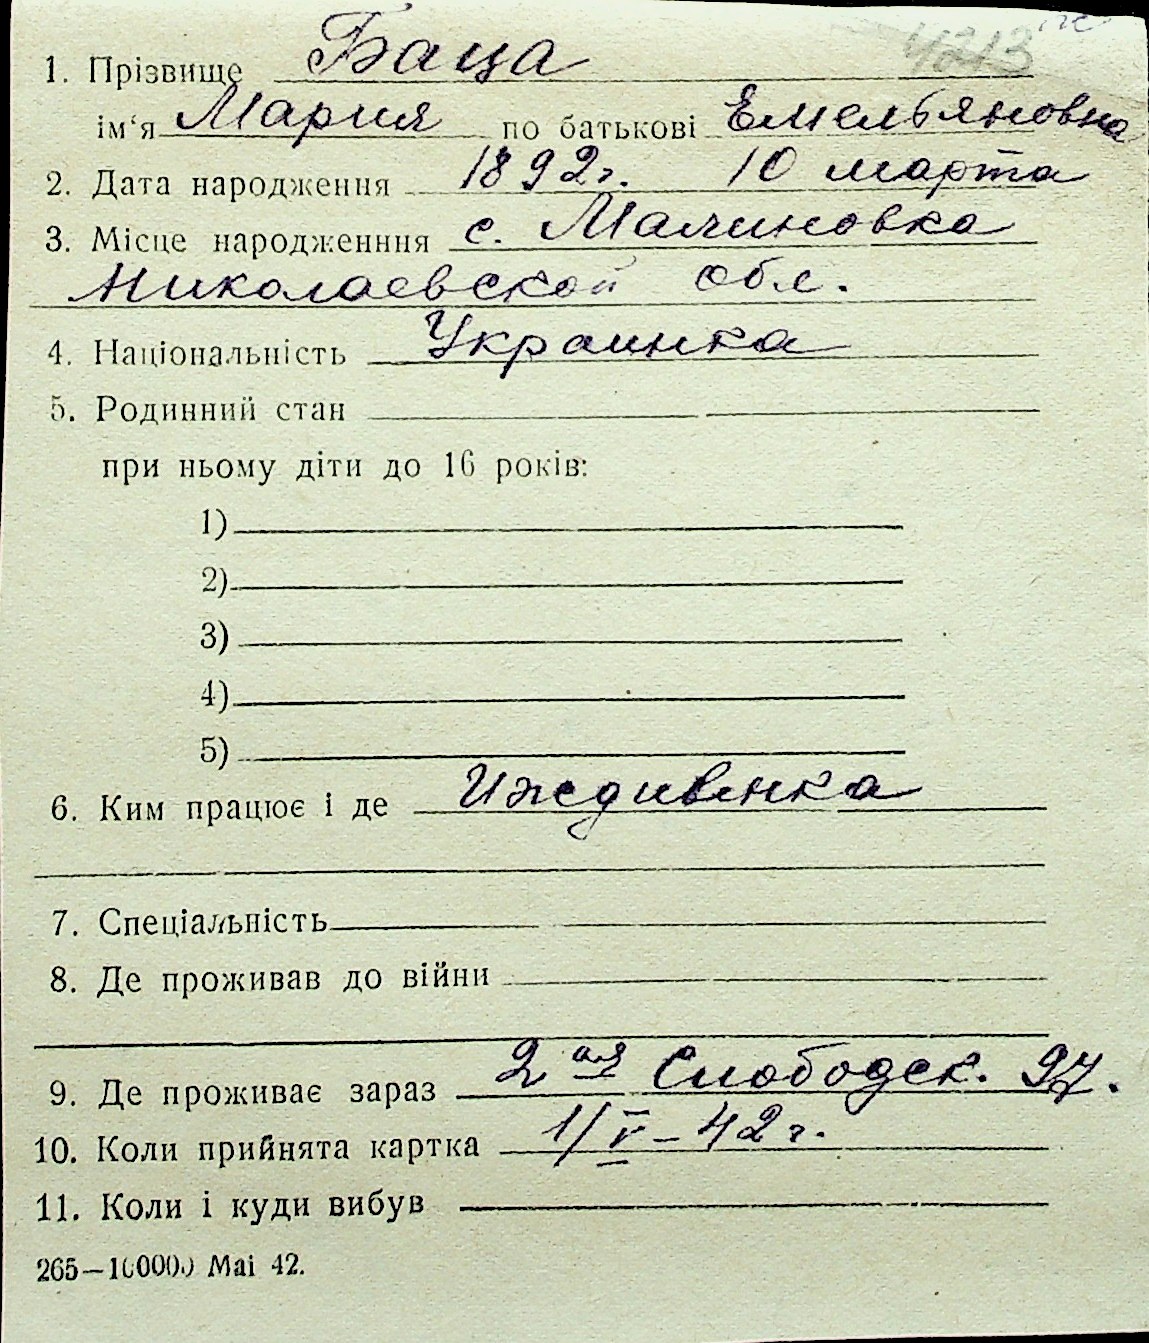 4213
1. Прізвище Баца
ім'я Мария по батькові Емельяновна
2. Дата народження 1892г. 10 марта
3. Місце народженння с. Малиновка
Николаевской обл.
4. Національність Украинка
5. Родинний стан
при ньому діти до 16 років:
1)
2)
3)
4)
5)
6. Ким працює і де Иждивенка
7. Спеціальність
8. Де проживав до війни
9. Де проживає зараз 2ая Слободск. 97.
10. Коли прийнята картка 1/V-42г.
11. Коли і куди вибув
265—10000) Маі 42.